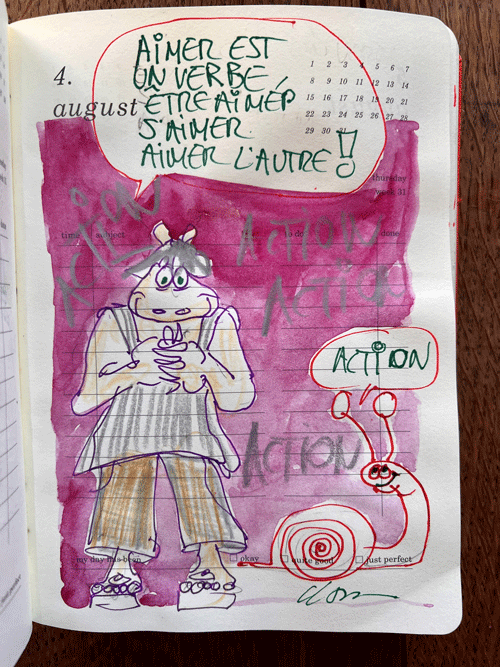 AIMER EST
UN VERBE
ÊTRE AIMÉ
S'AIMER
AIMER L'AUTRE !
4.
august
1 2 3 4 5 6 7
8 9 10 11 12 13 14
15 16 17 18 19 20 21
22 23 24 25 26 27 28
29 30 31
thursday
week 31
time subject
to do
done
ACTION
ACTION
ACTION
ACTION
ACTION
my day has been
okay
quite good
just perfect